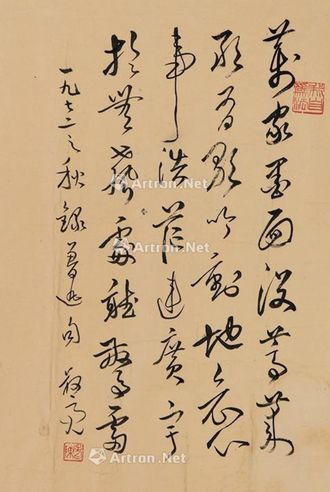 萬家墨面没蒿萊
敢有歌吟動地哀心
事浩茫連廣宇
於無聲處聽驚雷
一九七二之秋錄魯迅句
Artron.Net
Artron.Net
Artron.Net
Artron.Net